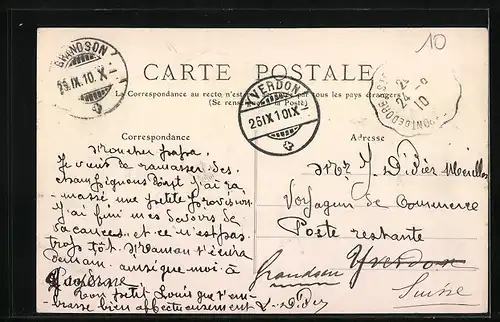 10
GRANDSON
25.IX.10.X
CARTE POSTALE
YVERDON
26 IX 10 IX
24
10
La Correspondance au recto n'est pas par tous les pays étrangers
(Se rens à la Poste)
Correspondance
Adresse
Mon cher papa,
Je viens de ramasser des
champignons dont j'ai ra-
massé une petite provision
J'ai fini mes devoirs de
vacances. et ce n'est pas
trop tôt. Maman t'écrira
demain. ainsi que moi à
Payerne
Ton petit Louis que t'em-
brasse bien affectueusement
L. Didier
Mr J. Didier
Voyageur de Commerce
Poste restante
Yverdon
Grandson
Suisse